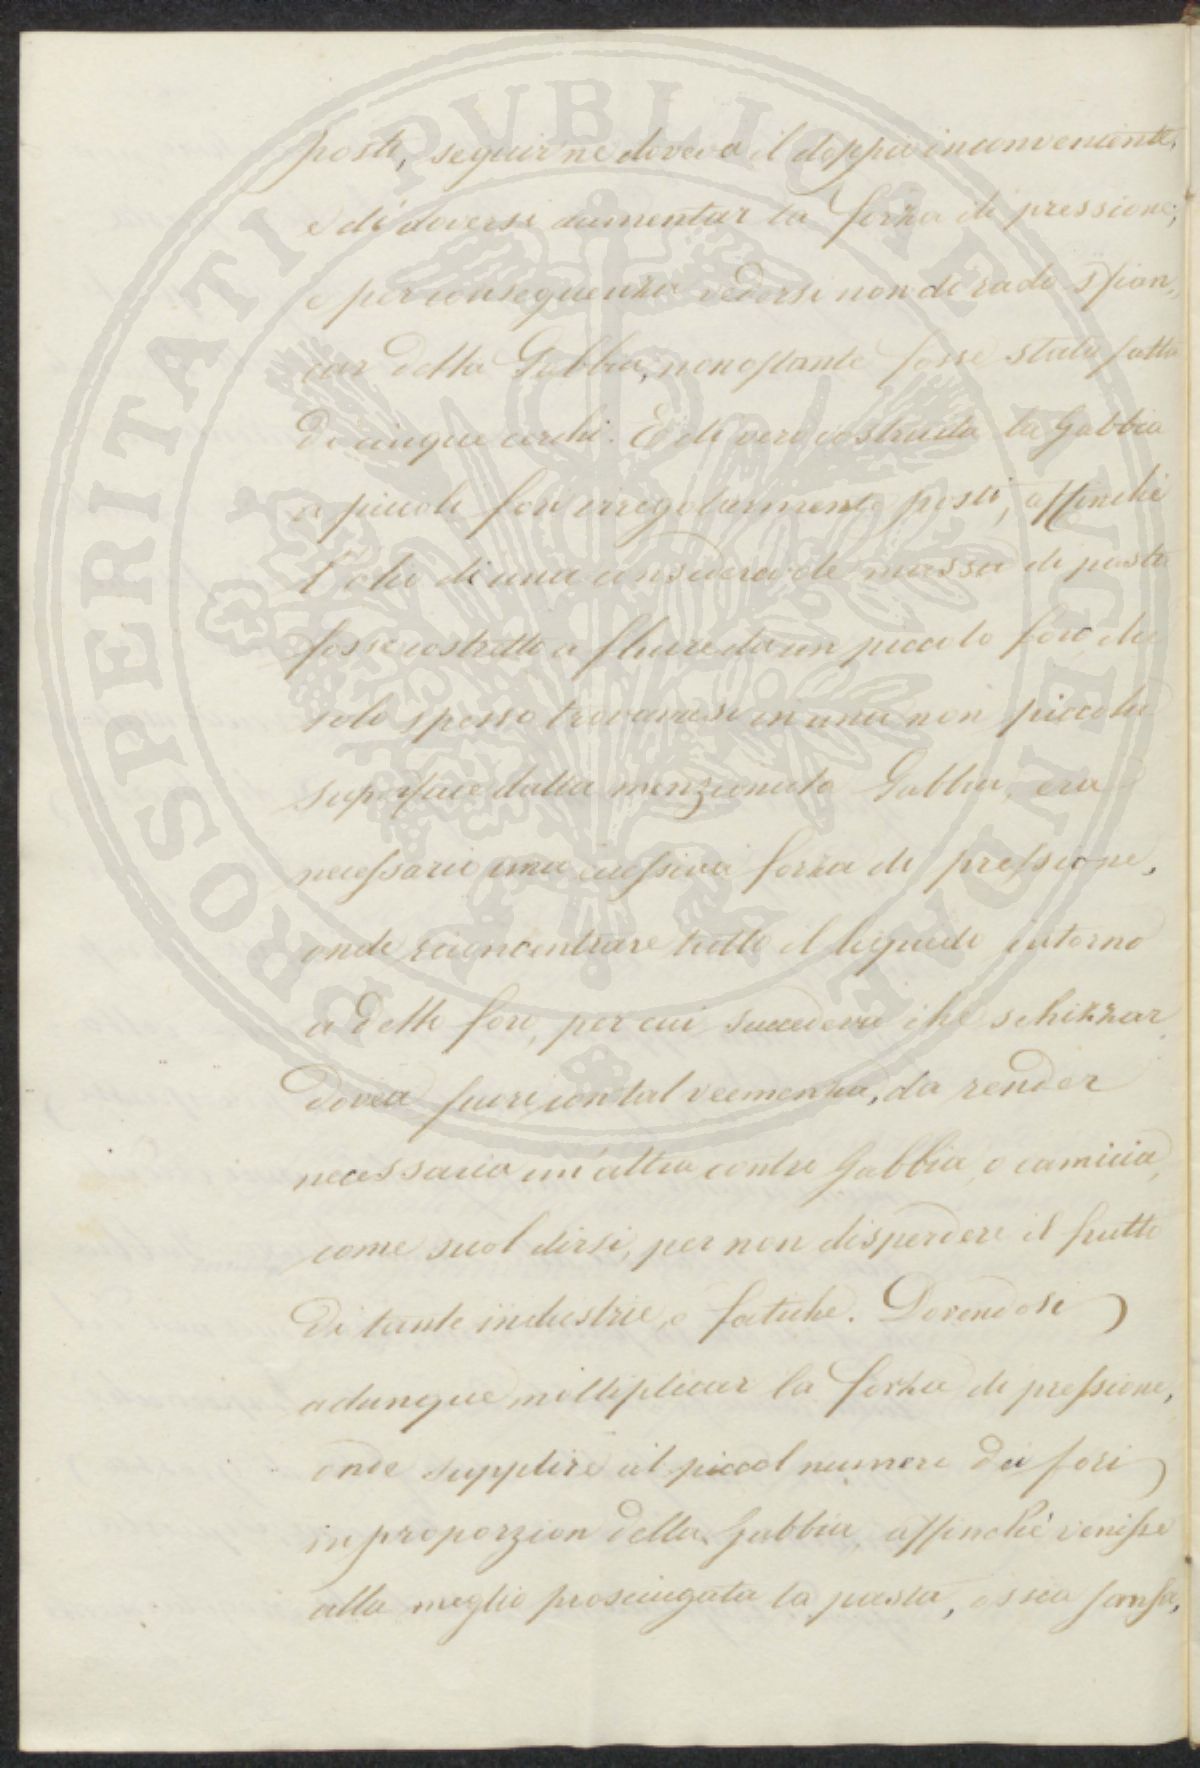 PROSPERITATI PVBLICAE AVGENDAE
posti, seguirne doveva il doppio inconveniente,
e di doversi aumentar la forza di pressione;
e per conseguenza vedersi non di rado spian,
car detta Gabbia, nonostante fosse stata fatta
di cinque cerchi. E di vero costruita la Gabbia
a piccoli fori irregolarmente posti, affinchè
l'olio di una considerevole massa di pasta
fosse costretto a fluire da un piccolo foro, che
solo spesso trovavasi in una non piccola
superficie della menzionata Gabbia, era
necessario una eccessiva forza di pressione,
onde riconcentrare tutto il liquido intorno
a detti fori, per cui succedeva che schizzar
dovea fuori con tal veemenza, da render
necessaria un'altra contro Gabbia, o camicia,
come suol dirsi, per non disperdere il frutto
di tante industrie, e fatiche. Dovendosi
adunque moltiplicar la forza di pressione,
onde supplire al piccol numero dei fori
in proporzion della Gabbia, affinchè venisse
alla meglio prosciugata la pasta, ossia sansa,